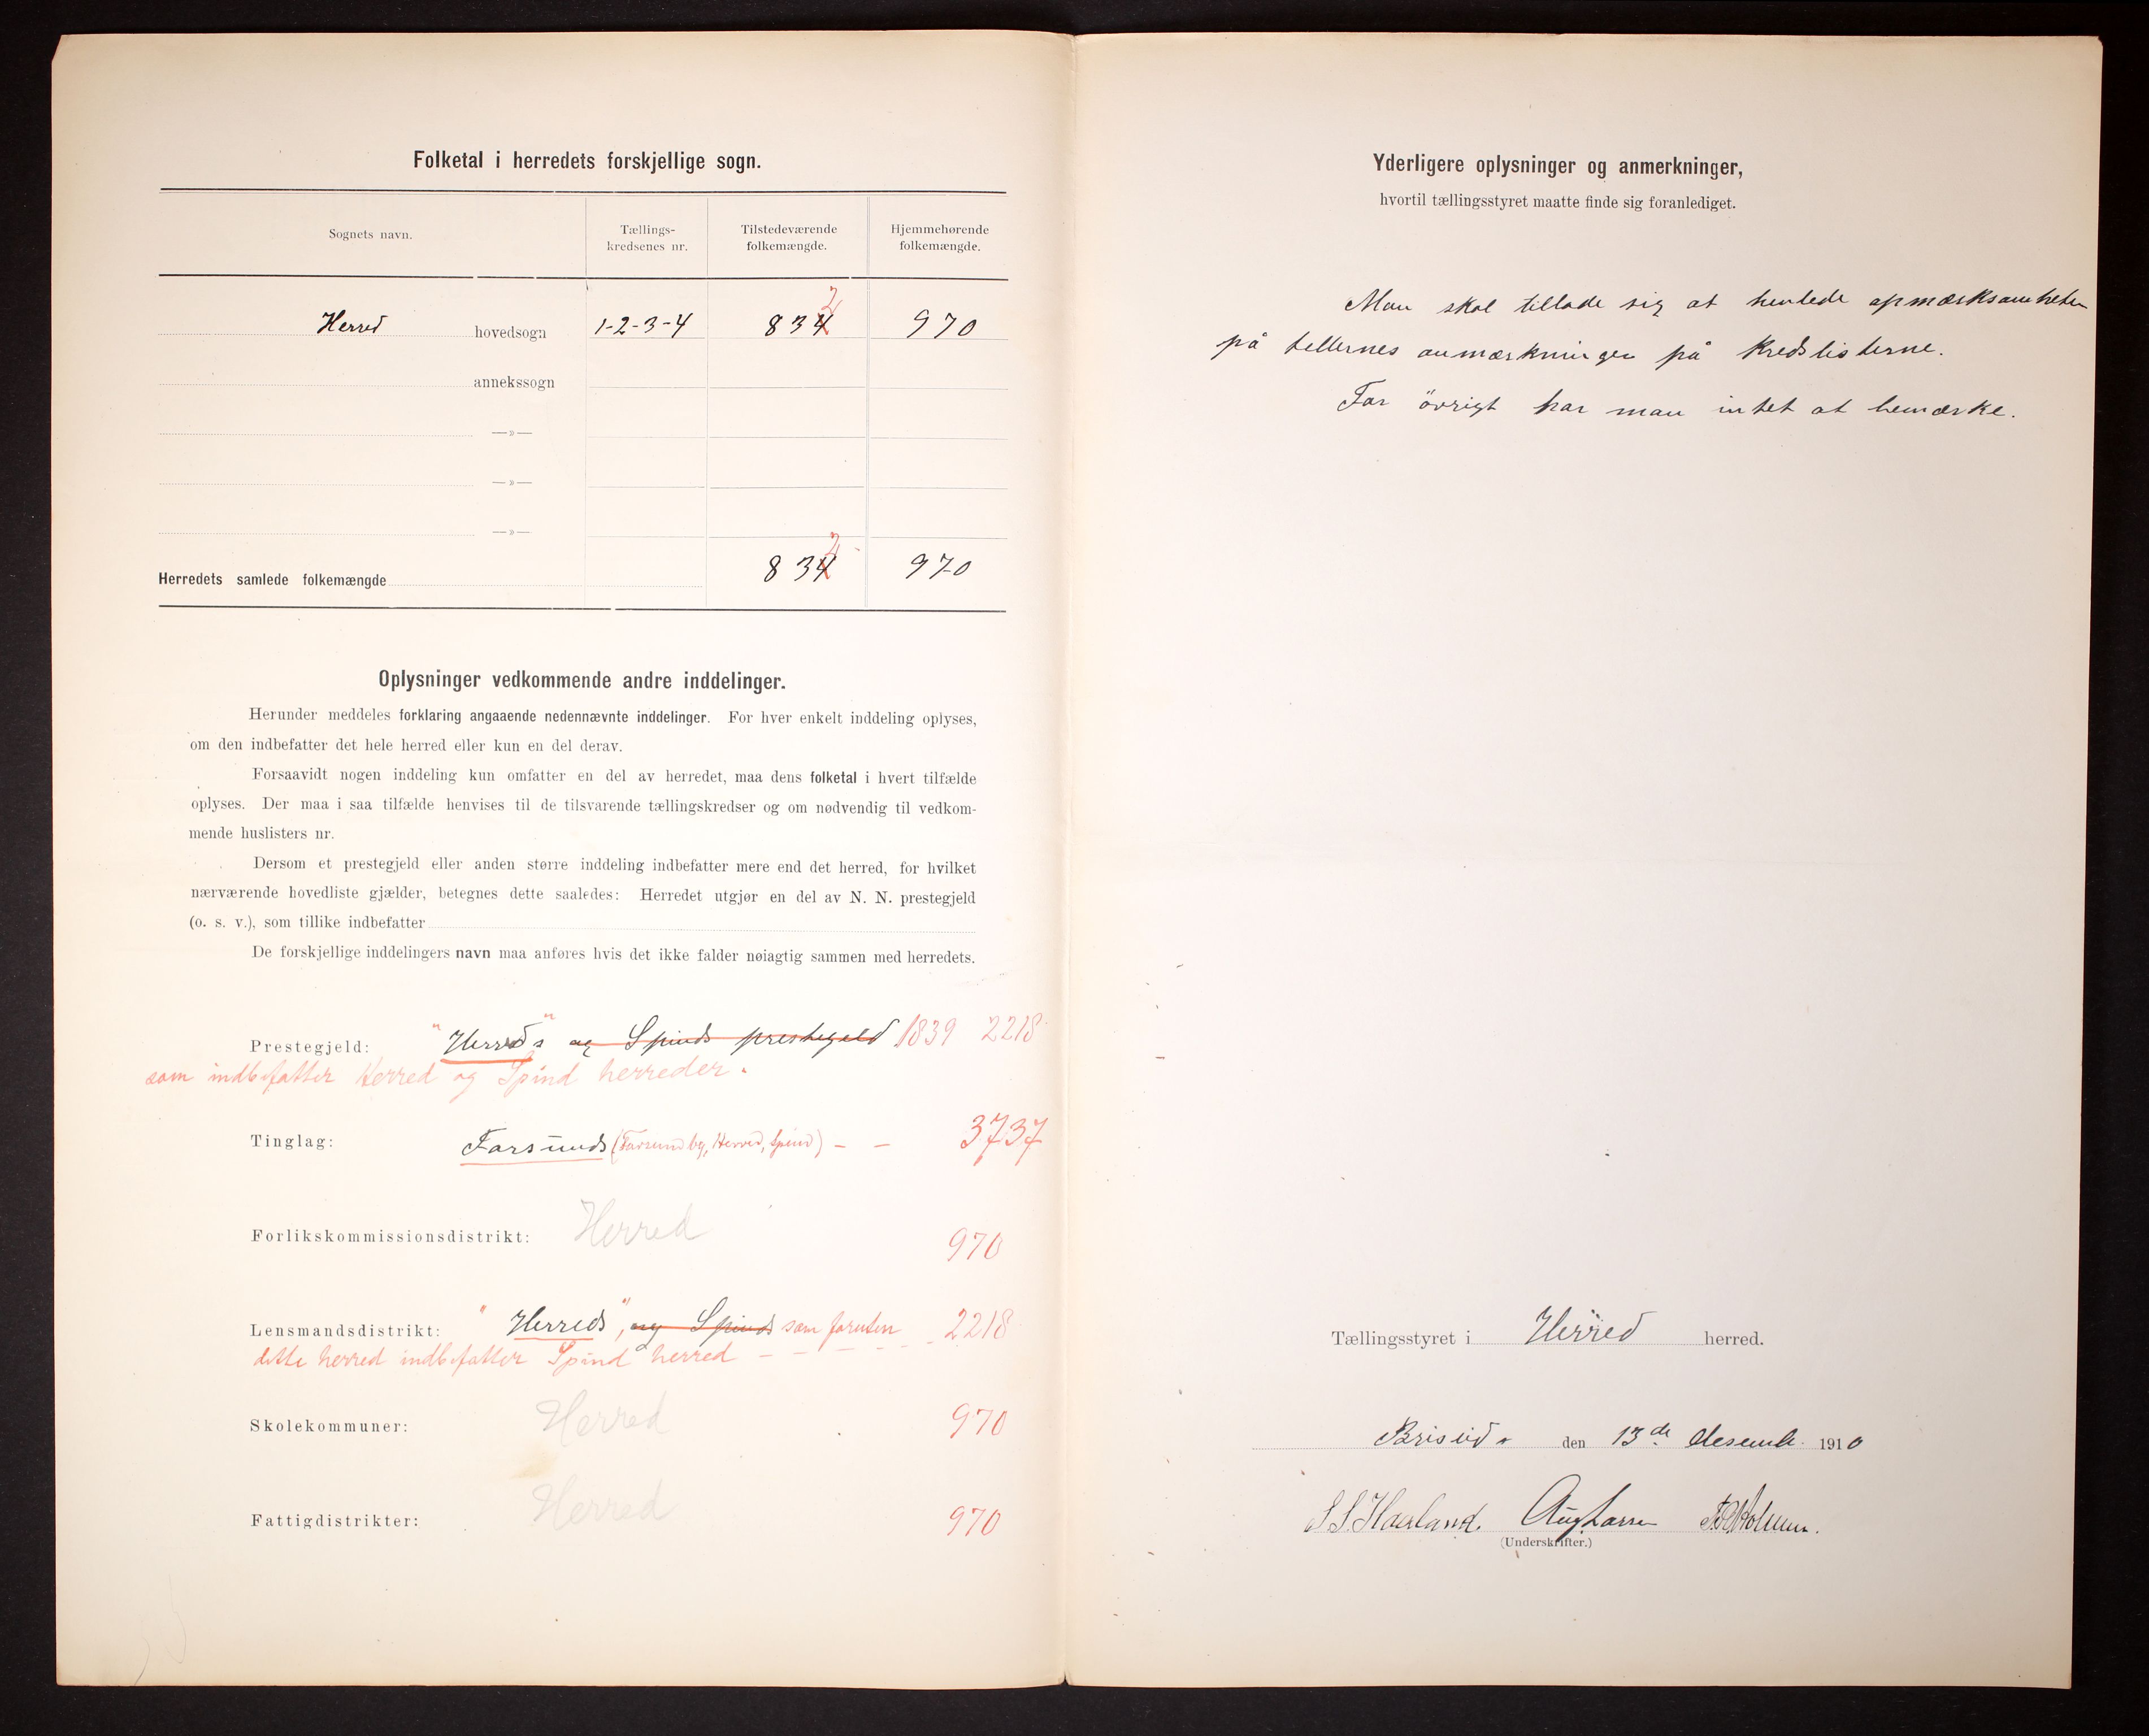 Folketal i herredets forskjellige sogn.
Sognets navn. Tællings-kredsenes nr. Tilstedeværende folkemængde. Hjemmehørende folkemængde.
2
Herred hovedsogn 1-2-3-4 834 970
annekssogn
—»—
—»—
—»—
2
Herredets samlede folkemængde 834 970
Oplysninger vedkommende andre inddelinger.
Herunder meddeles forklaring angaaende nedennævnte inddelinger. For hver enkelt inddeling oplyses,
om den indbefatter det hele herred eller kun en del derav.
Forsaavidt nogen inddeling kun omfatter en del av herredet, maa dens folketal i hvert tilfælde
oplyses. Der maa i saa tilfælde henvises til de tilsvarende tællingskredser og om nødvendig til vedkom-
mende huslisters nr.
Dersom et prestegjeld eller anden større inddeling indbefatter mere end det herred, for hvilket
nærværende hovedliste gjælder, betegnes dette saaledes: Herredet utgjør en del av N. N. prestegjeld
(o. s. v.), som tillike indbefatter
De forskjellige inddelingers navn maa anføres hvis det ikke falder nøiagtig sammen med herredets.
Prestegjeld: "Herred's" og Spinds prestegeld 1839 2218
som indbefatter Herred og Spind herreder.
Tinglag: Farsunds (Farsund by, Herred, Spind) – – 3737
Forlikskommissionsdistrikt: Herred 970
Lensmandsdistrikt: "Herreds", og Spinds som foruten 2218
dette herred indbefatter Spind herred – – – – – –
Skolekommuner: Herred 970
Fattigdistrikter: Herred 970
Yderligere oplysninger og anmerkninger,
hvortil tællingsstyret maatte finde sig foranlediget.
Man skal tillade sig at henlede opmærksamheten
på tellernes anmærkninger på kredslisterne.
For övrigt har man intet at bemærke.
Tællingsstyret i Herred herred.
den 13de desemb. 1910
Aug Larsen
(Underskrifter.)